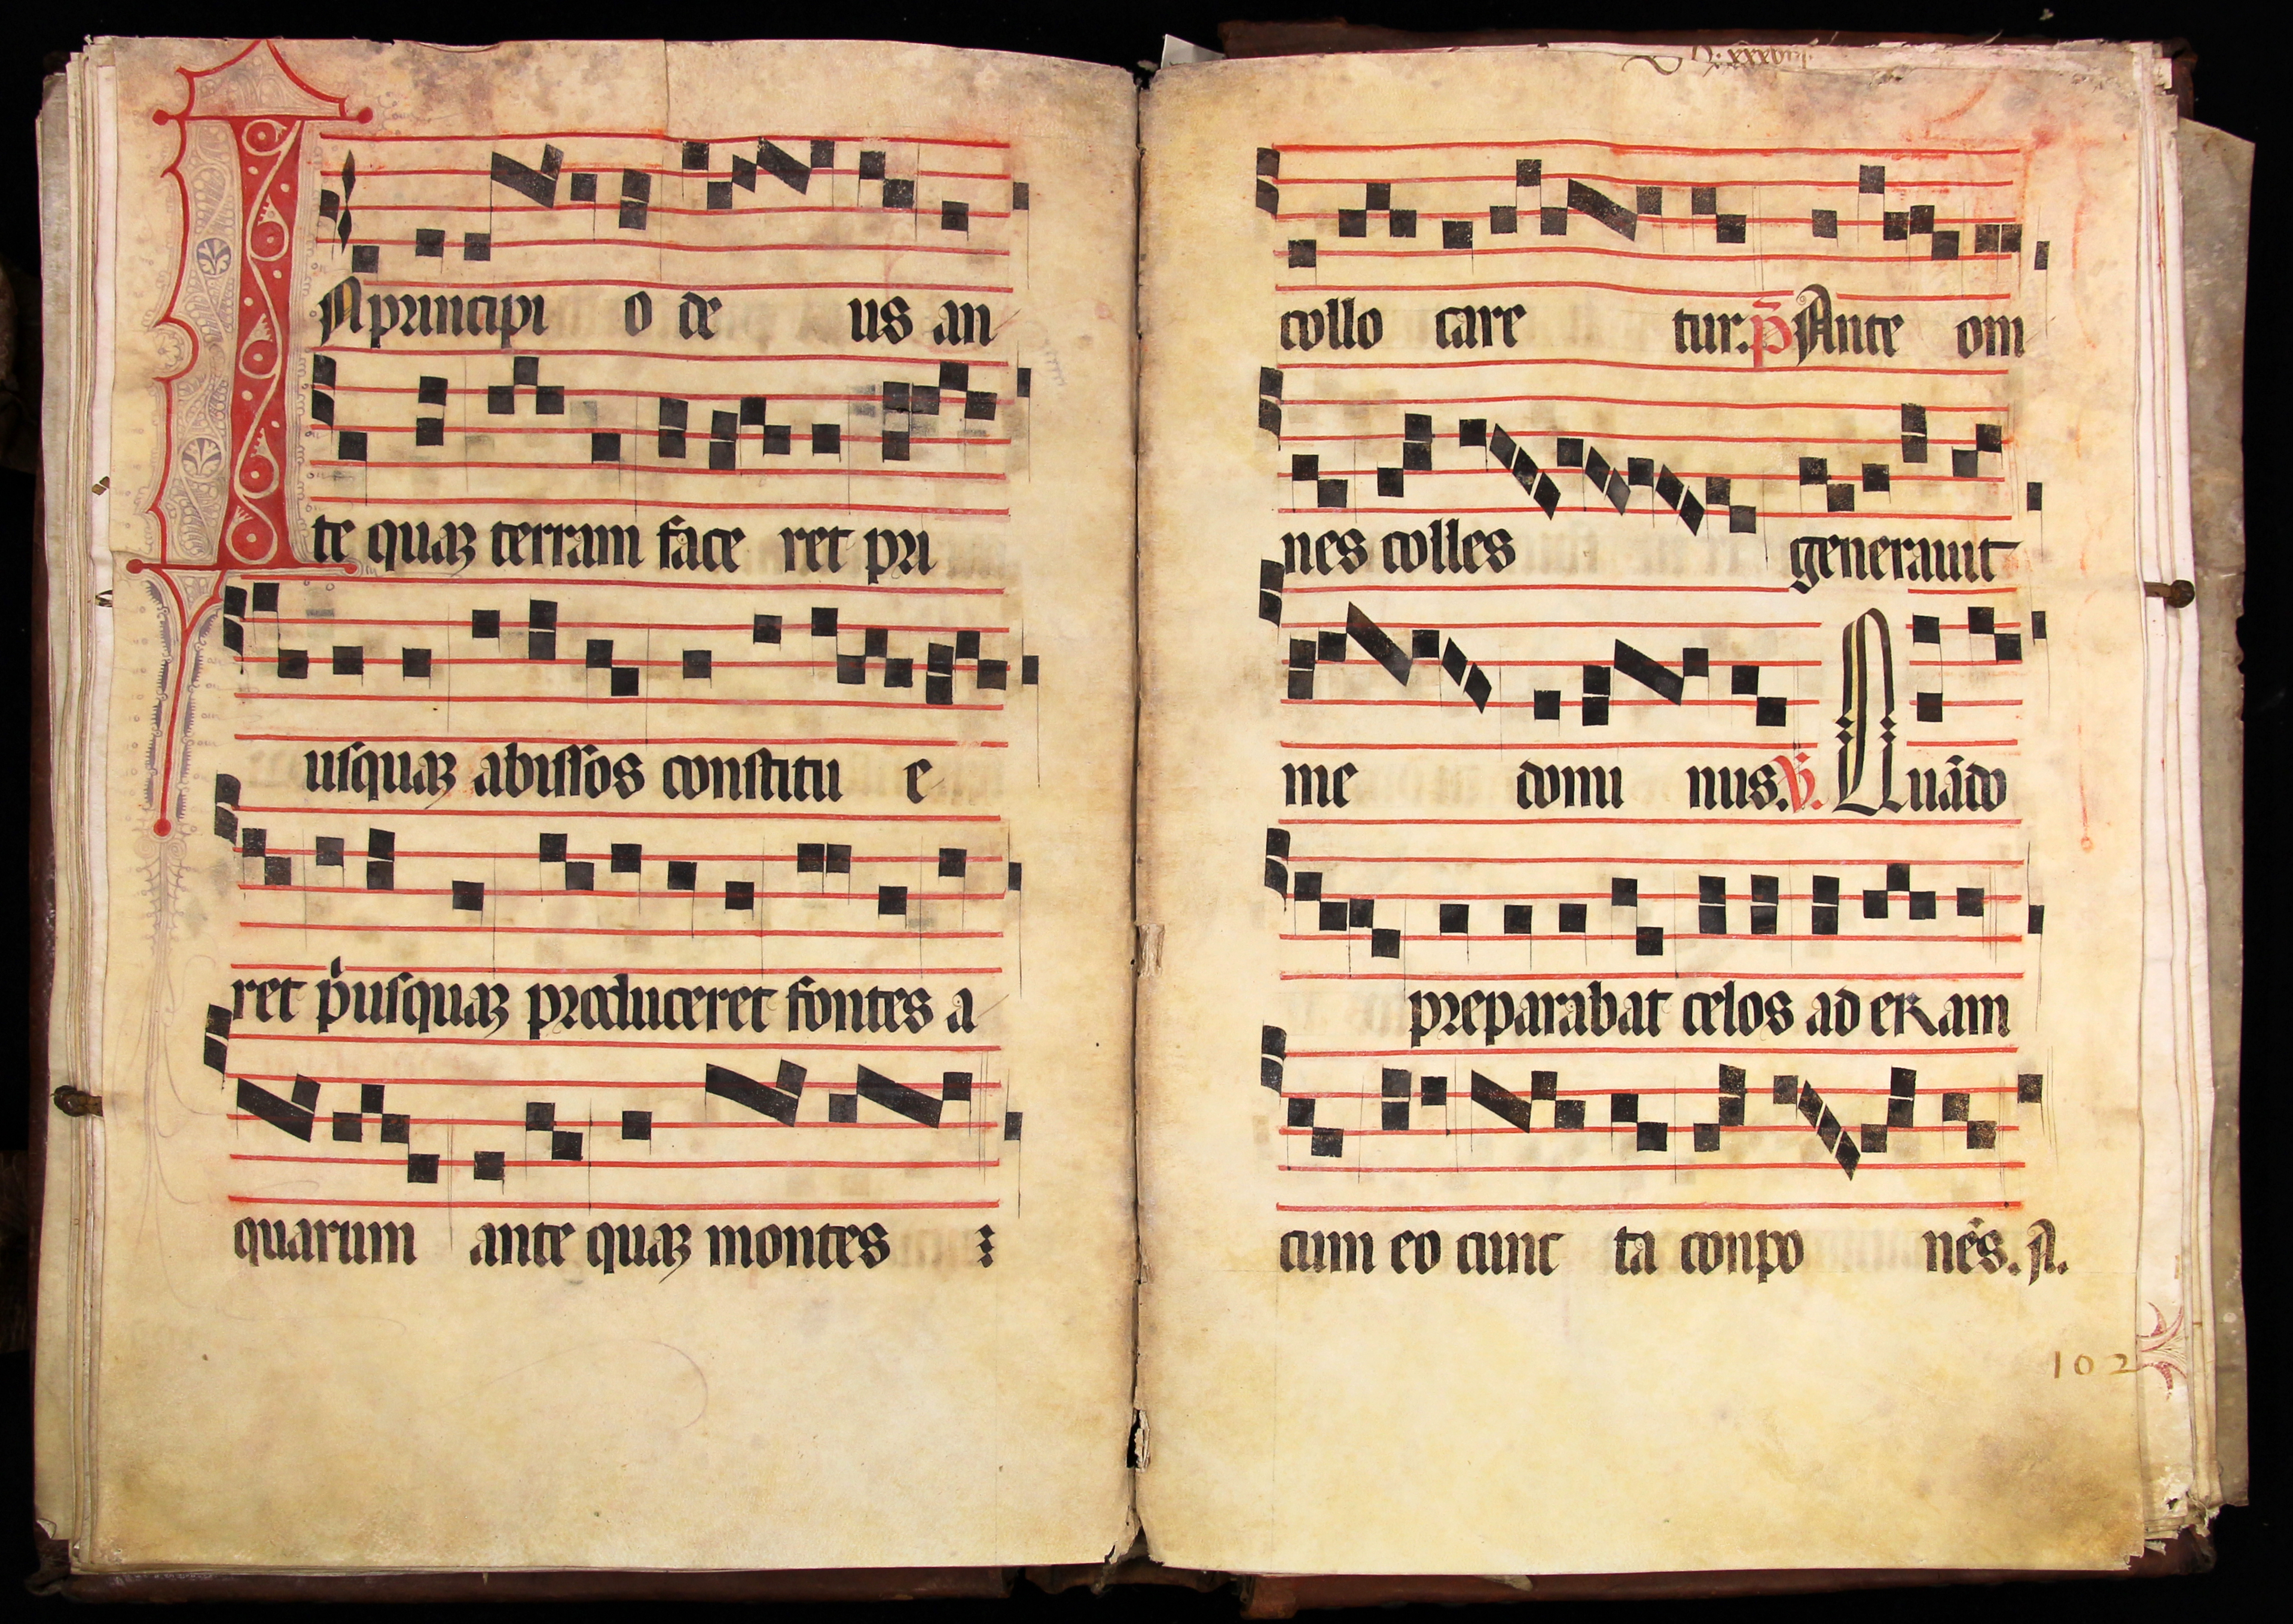 IN principi o de us an
te quaꝫ terram face ret pri
usquaꝫ abissos constitu e
ret p̍usquaꝫ produceret fontes a
quarum ante quaꝫ montes
collo care tur. p̄ Ante om
nes colles generauit
me domi nus. ℣. Quādo
preparabat celos aderam
cum eo cunc ta conpo nēs. A.
102